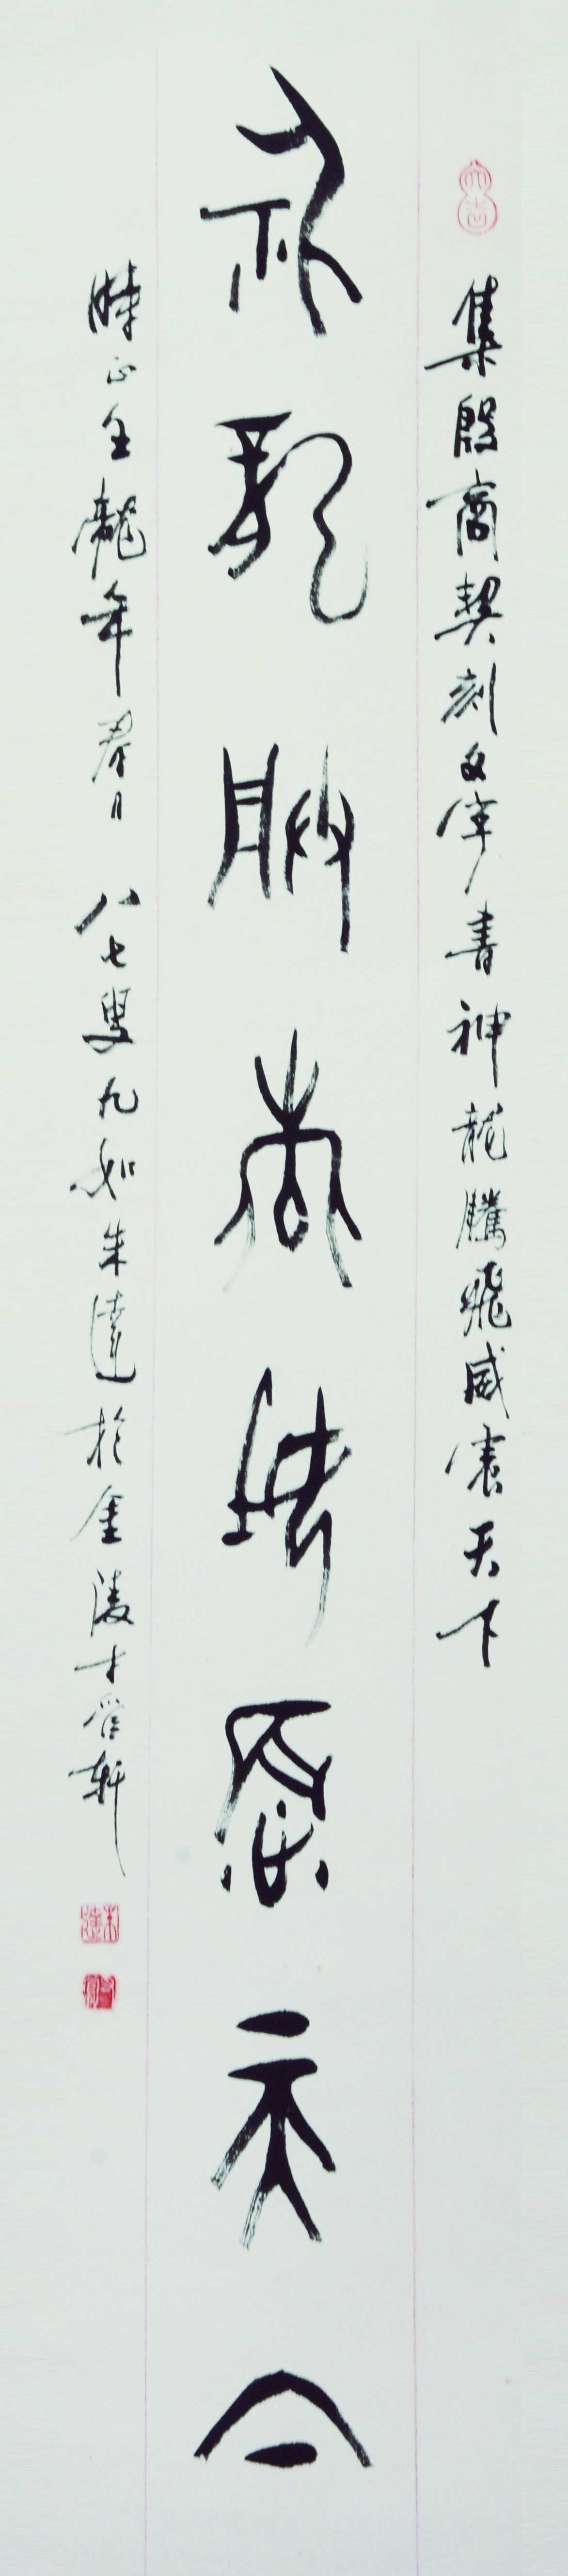 大吉
集殷商契刻文字書神龍騰飛威震天下
神龍騰飛威震天下
時壬龍年春月 八七叟九如朱達於金陵才育軒